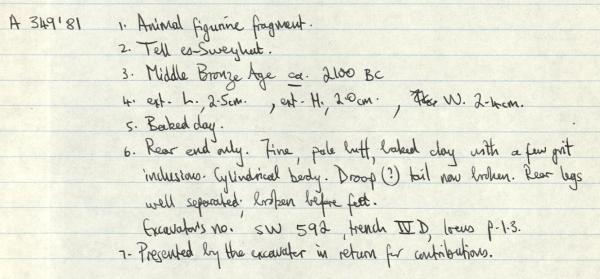 A 349'81 1. Animal figurine fragment.
2. Tell es-Sweyhat.
3. Middle Bronze Age ca. 2100 BC
4. ext. L. 2·5cm. , ext. H. 2·0cm. , W. 2·4cm.
5. Baked clay.
6. Rear end only. Fine, pale buff, baked clay with a few grit
inclusions. Cylindrical body. Droop (?) tail now broken. Rear legs
well separated; broken before feet.
Excavator's no. SW 592, trench IV D, locus P.1.3.
7. Presented by the excavator in return for contributions.